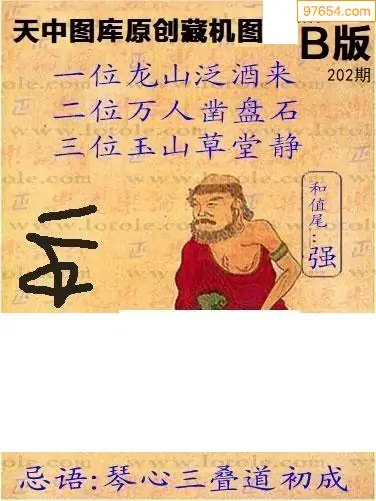 97654.com
天中图库原创藏机图
B版
202期
一位龙山泛酒来
二位万人凿盘石
三位玉山草堂静
和值尾:强
忌语:琴心三叠道初成